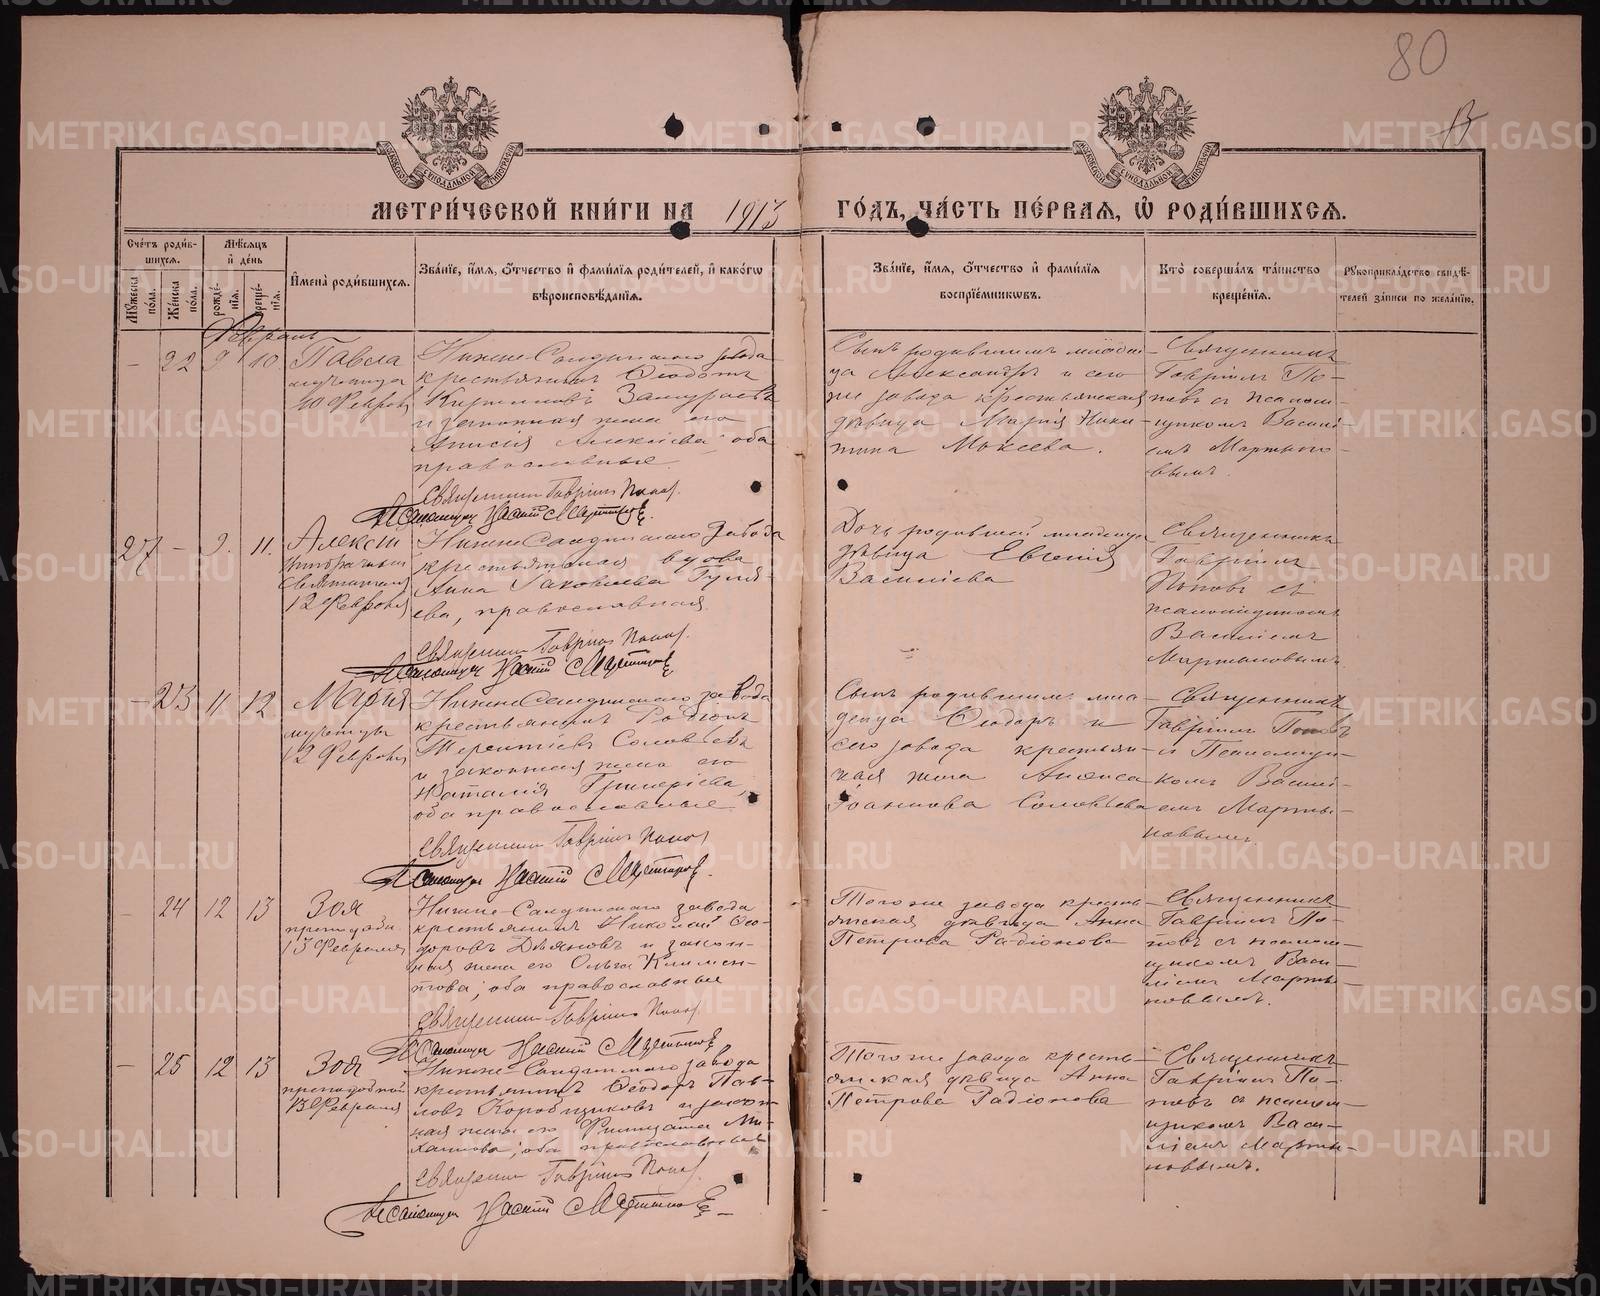 80
МЕТРИЧЕСКОЙ КНИГИ НА 1913 ГОДЪ, ЧАСТЬ ПЕРВАЯ, Ѿ РОДИВШИХСЯ.
Счетъ родившихся.
Мужеска пола.
Женска пола.
Мѣсяцъ и день
рожденія.
крещенія.
Имена родившихся.
Званіе, имя, отчество и фамилія родителей, и какогѡ
вѣроисповѣданія.
Званіе, имя, отчество и фамилія
воспріемникѡвъ.
Кто совершалъ таинство
крещенія.
Рукоприкладство свидѣ-
телей записи по желанію.
Февраль
- 22 9 10
Павла
мученица
10 Февраля
Нижне-Салдинскаго завода
крестьянинъ Ѳеодотъ
Кирилловъ Замураевъ
и законная жена его
Анисія Алексіева; оба
православные.
Священникъ Гавріилъ Попов.
Псаломщик Василій Мартынов.
Сынъ родившимъ младен-
ца Александръ и сего
же завода крестьянская
дѣвица Марія Ники-
тина Мокеева.
Священникъ
Гавріилъ По-
повъ съ псалом-
щикомъ Василі-
емъ Мартыно-
вымъ.
27 - 9. 11.
Алексій
Святителя
12 Февраля
Нижне Салдинскаго завода
крестьянская вдова
Анна Іаковлева Гуля-
ева, православная
Священникъ Гавріилъ Попов.
Псаломщик Василій Мартынов.
Дочь родившей младенца
дѣвица Евгенія
Василіева
Священникъ
Гавріилъ
Поповъ съ
псаломщикомъ
Василіемъ
Мартыновымъ.
- 23 11 12
Марія
12 Февраля
Нижне Салдинскаго завода
крестьянинъ Родіонъ
Терентіевъ Соловьевъ
и законная жена его
Наталія Григоріева,
оба православные
Священникъ Гавріилъ Попов
Псаломщик Василій Мартынов.
Сынъ родившимъ мла-
денца Ѳеодоръ и
сего завода крестьян-
ская жена Анѳиса
Іоаннова Соловьева
Священникъ
Гавріилъ Поповъ
съ Псаломщи-
комъ Василі-
емъ Марты-
новымъ.
- 24 12 13
Зоя
преподоб.
13 Февраля
Нижне-Салдинскаго завода
крестьянинъ Николай Ѳео-
доровъ Дѣяновъ и закон-
ная жена его Ольга Климен-
това; оба православные
Священникъ Гавріилъ Попов.
Псаломщик Василій Мартынов
Того же завода кресть-
янская дѣвица Анна
Петрова Радіонова
Священникъ
Гавріилъ По-
повъ съ псалом-
щикомъ Васи-
ліемъ Марты-
новымъ.
- 25 12 13
Зоя
преподобной
13 Февраля
Нижне-Салдинскаго завода
крестьянинъ Ѳеодоръ Пав-
ловъ Коробщиковъ и закон-
ная жена его Фиицата Ми-
хаилова; оба православные
Священникъ Гавріилъ Попов.
Псаломщик Василій Мартынов
Того же завода кресть-
янская дѣвица Анна
Петрова Радіонова
Священникъ
Гавріилъ По-
повъ съ псалом-
щикомъ Васи-
ліемъ Марты-
новымъ.